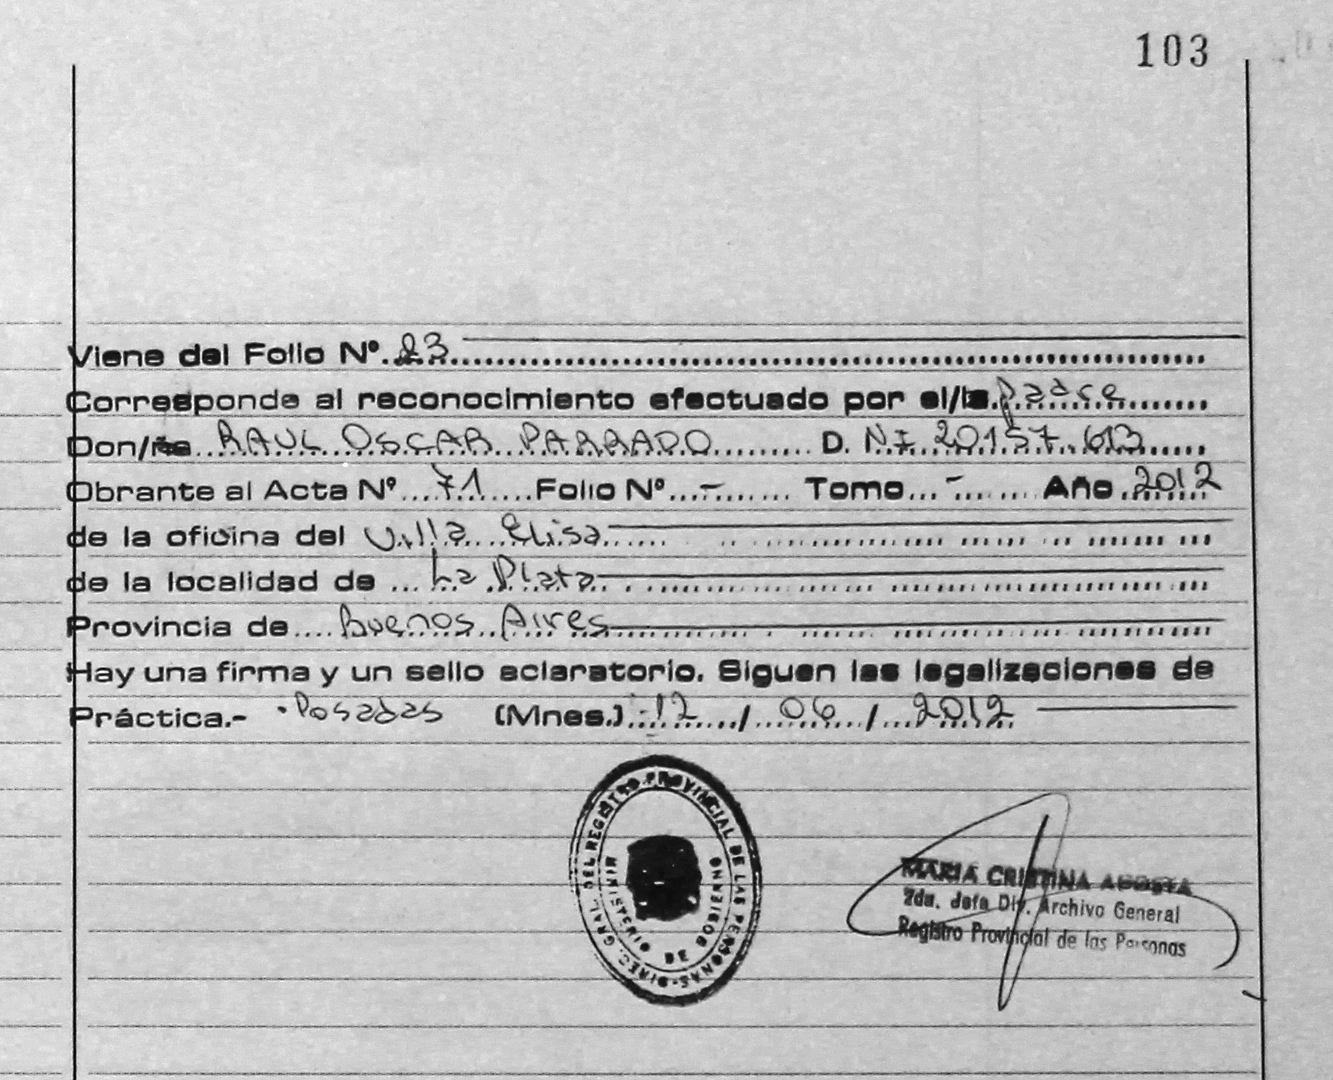 103
Viene del Folio Nº. 23
Corresponde al reconocimiento efectuado por el/la padre
Don/ña RAUL OSCAR PARRADO D. N.I. 20.157.613
Obrante al Acta Nº 71 Folio Nº - Tomo - Año 2012
de la oficina del Villa Elisa
de la localidad de La Plata
Provincia de Buenos Aires
Hay una firma y un sello aclaratorio. Siguen las legalizaciones de
Práctica.- Posadas (Mnes.) 12 / 06 / 2012
DIREC. GRAL. DEL REGISTRO PROVINCIAL DE LAS PERSONAS
MINISTERIO DE GOBIERNO
MARIA CRISTINA ACOSTA
2da. Jefa Div. Archivo General
Registro Provincial de las Personas